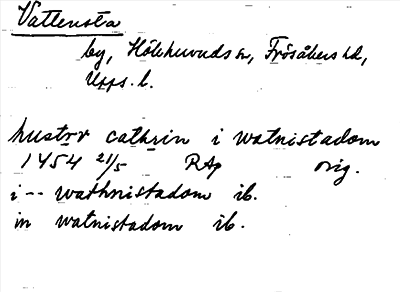 Vattensta
by, Hökhuvuds sn, Frösåkers hd,
Upps. l.
hustrv cathrin i watnistadom
1454 21/5 RAp orig.
i -- wathnistadom ib.
in watnistadom ib.